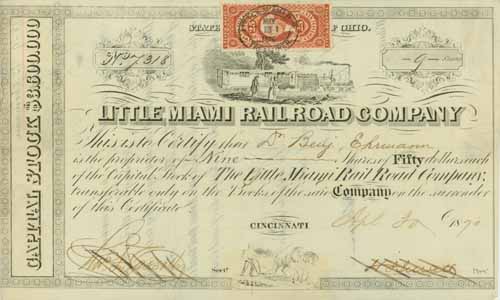 STATE OF OHIO.
No. 7318
9 Shares
LITTLE MIAMI RAILROAD COMPANY
This is to Certify that Dr Benj. Ehrmann
is the proprietor of Nine Shares of Fifty dollars each
of the Capital Stock of The Little Miami Rail Road Company,
transferable only on the Books of the said Company on the surrender
of this Certificate.
CINCINNATI Sept 30 1870
Secy. Pres.